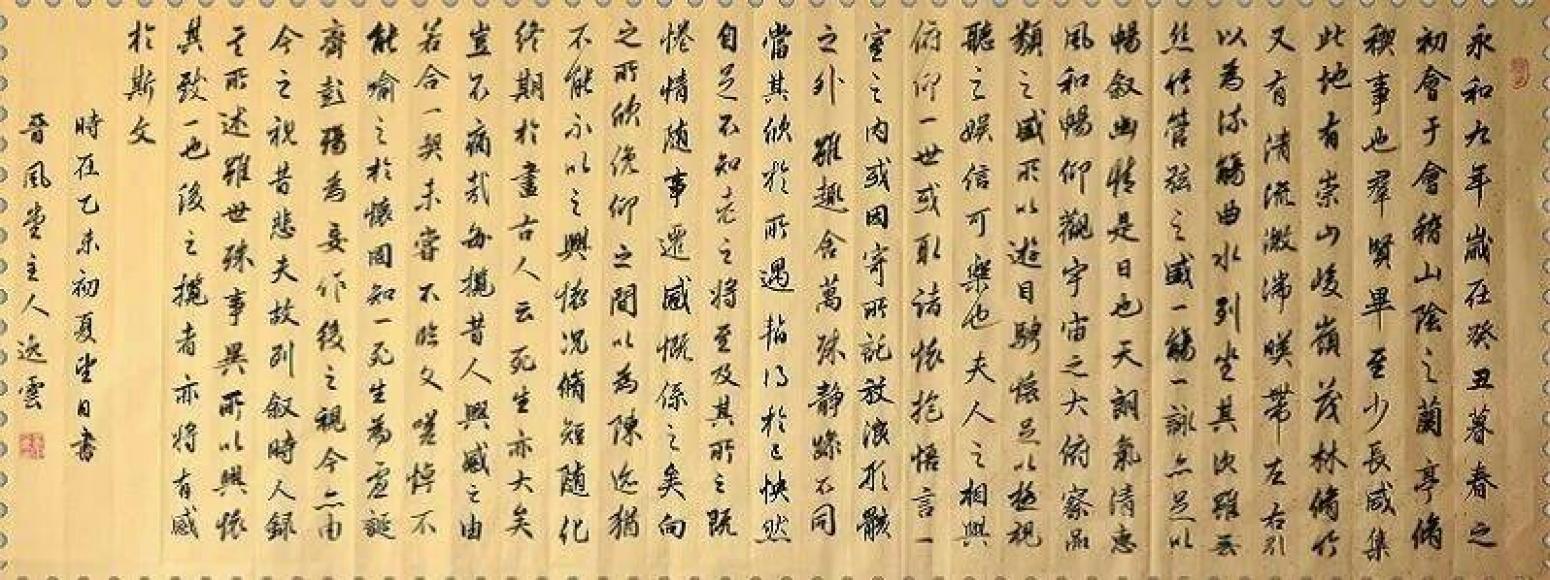 永和九年歲在癸丑暮春之
初會于會稽山陰之蘭亭脩
稧事也羣賢畢至少長咸集
此地有崇山峻嶺茂林脩竹
又有清流激湍暎帶左右引
以為流觴曲水列坐其次雖無
絲竹管弦之盛一觴一詠亦足以
暢敘幽情是日也天朗氣清惠
風和暢仰觀宇宙之大俯察品
類之盛所以遊目騁懷足以極視
聽之娛信可樂也夫人之相與
俯仰一世或取諸懷抱悟言一
室之内或因寄所託放浪形骸
之外雖趣舍萬殊靜躁不同
當其欣於所遇暫得於己怏然
自足不知老之將至及其所之既
惓情隨事遷感慨係之矣向
之所欣俛仰之間以為陳迹猶
不能不以之興懷況脩短隨化
終期於盡古人云死生亦大矣
豈不痛哉每攬昔人興感之由
若合一契未嘗不臨文嗟悼不
能喻之於懷固知一死生為虛誕
齊彭殤為妄作後之視今亦由
今之視昔悲夫故列敘時人録
其所述雖世殊事異所以興懷
其致一也後之攬者亦將有感
於斯文
時在乙未初夏望日書
晉風堂主人逸雲